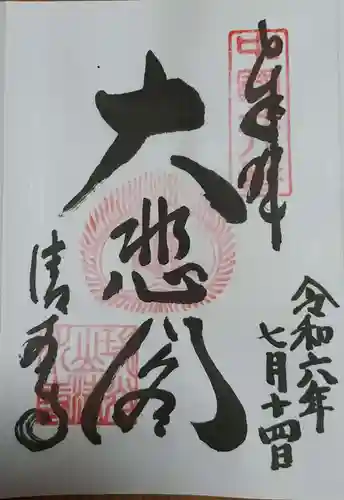 奉拝
大悲閣
清水寺
令和六年
七月十四日